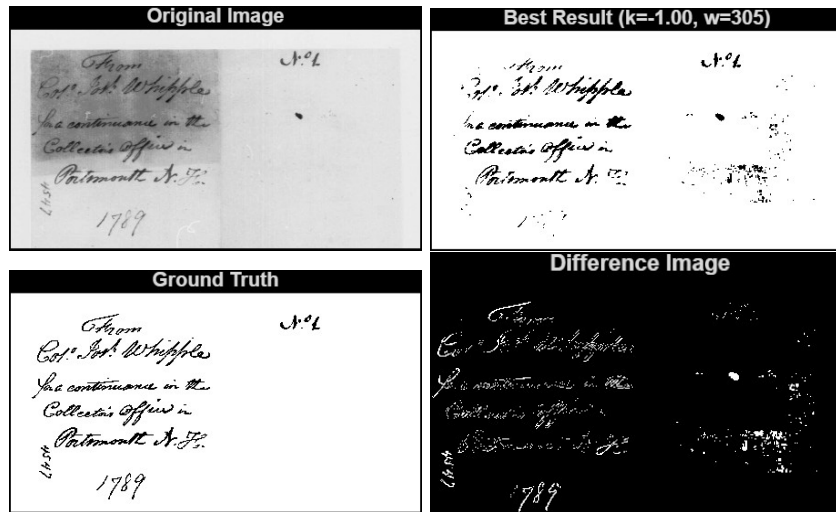 Original Image
From
N.º 1
Col.º Jos. Whipple
for a continuance in the
Collectors Office in
Portsmouth N. H.
1789
Best Result (k=-1.00, w=305)
From
N.º 1
Col.º Jos. Whipple
for a continuance in the
Collectors Office in
Portsmouth N. H.
Ground Truth
From
N.º 1
Col.º Jos. Whipple
for a continuance in the
Collectors Office in
Portsmouth N. H.
1789
Difference Image
From
Whipple
for a continuance in the
1789